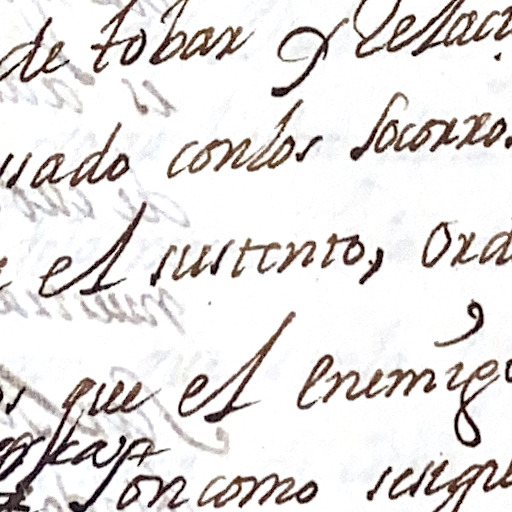 de tobar y relaci
usado con los socorros
e el sustento, ord
os que el enemigo
on como se